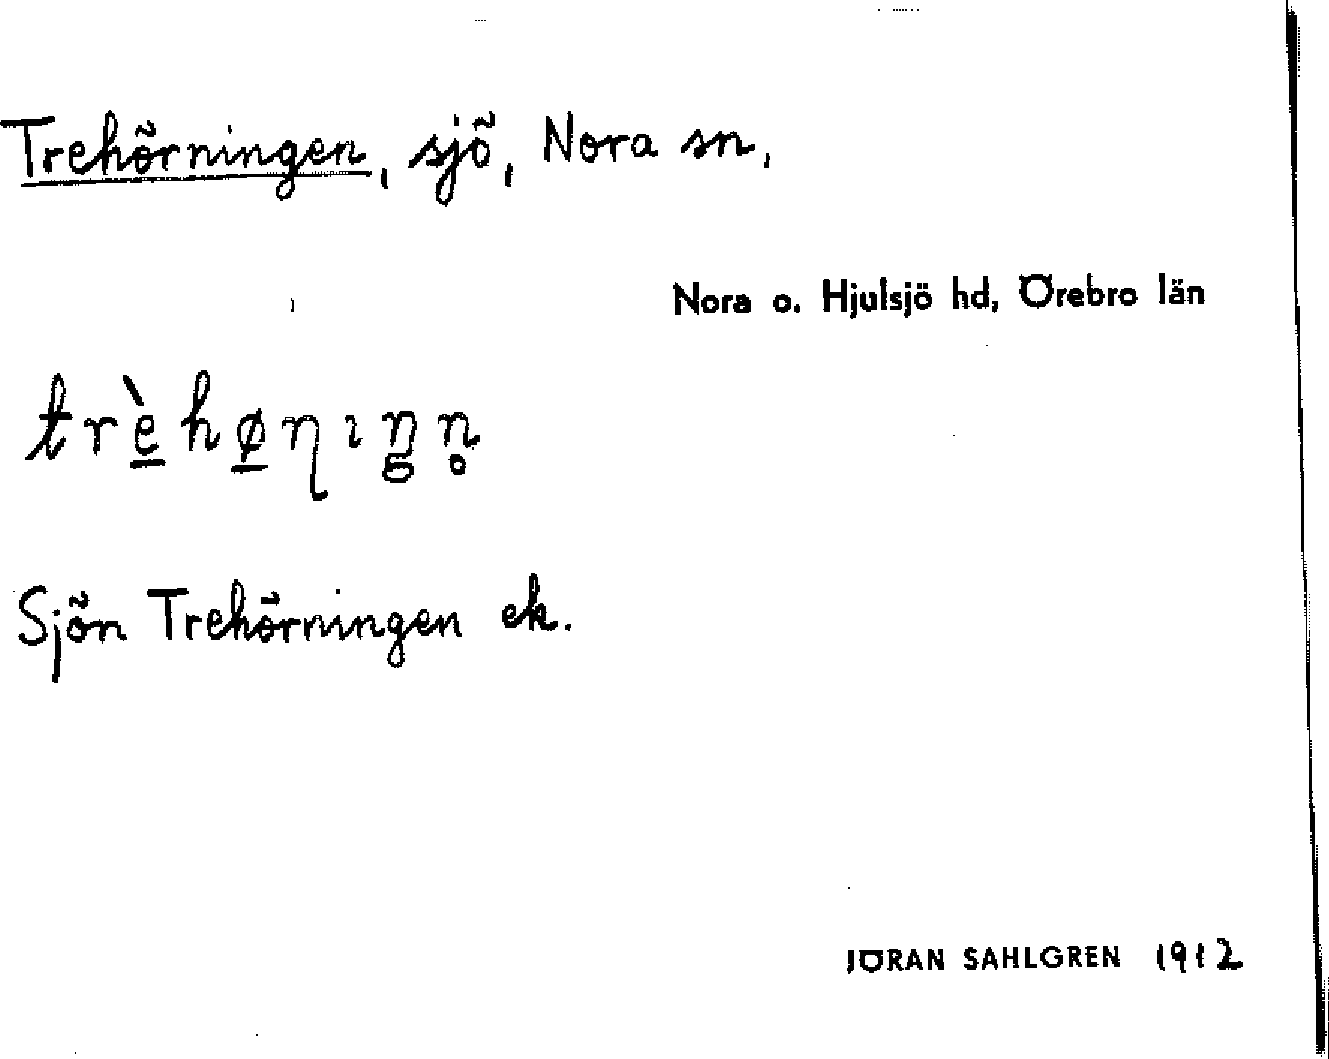 Trehörningen, sjö, Nora sn,
Nora o. Hjulsjö hd, Örebro län
trè̠hø̠ɳıŋn̥
Sjön Trehörningen ek.
JÖRAN SAHLGREN 1912